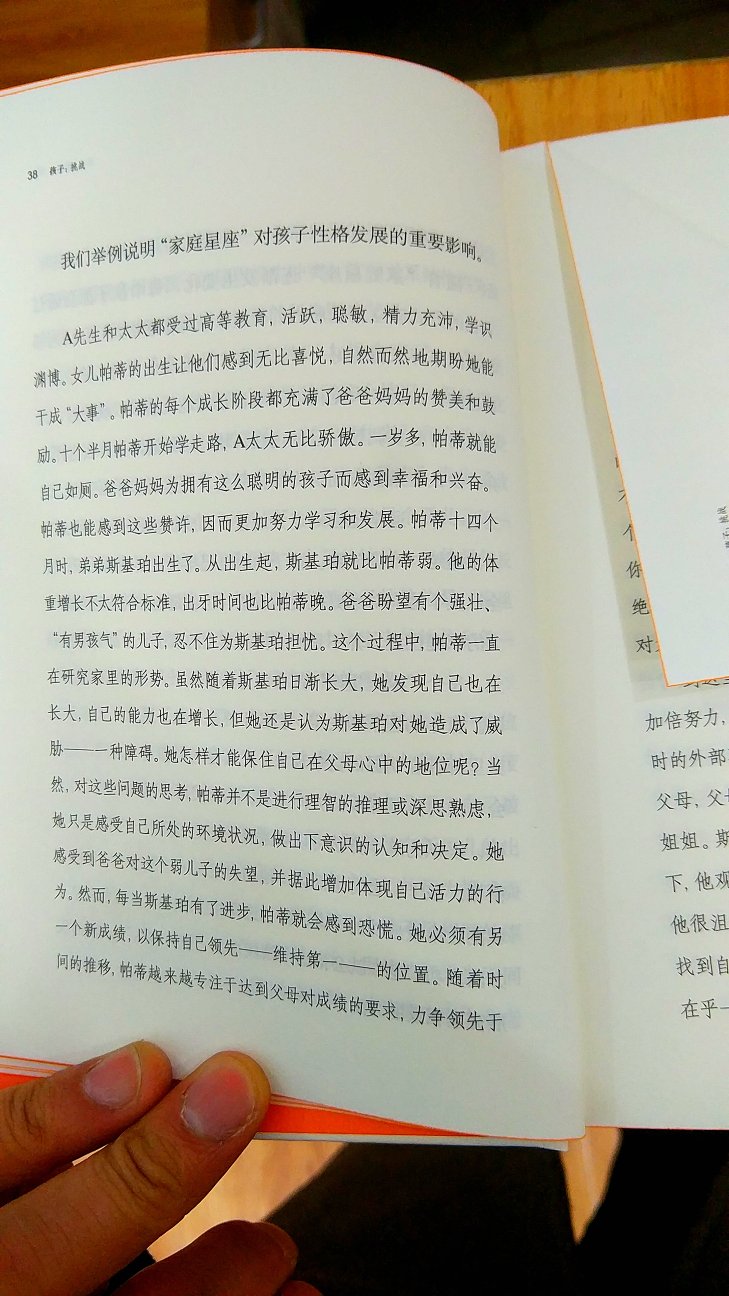 38 孩子：挑战
我们举例说明“家庭星座”对孩子性格发展的重要影响。
A先生和太太都受过高等教育，活跃，聪敏，精力充沛，学识
渊博。女儿帕蒂的出生让他们感到无比喜悦，自然而然地期盼她能
干成“大事”。帕蒂的每个成长阶段都充满了爸爸妈妈的赞美和鼓
励。十个半月帕蒂开始学走路，A太太无比骄傲。一岁多，帕蒂就能
自己如厕。爸爸妈妈为拥有这么聪明的孩子而感到幸福和兴奋。
帕蒂也能感到这些赞许，因而更加努力学习和发展。帕蒂十四个
月时，弟弟斯基珀出生了。从出生起，斯基珀就比帕蒂弱。他的体
重增长不太符合标准，出牙时间也比帕蒂晚。爸爸盼望有个强壮、
“有男孩气”的儿子，忍不住为斯基珀担忧。这个过程中，帕蒂一直
在研究家里的形势。虽然随着斯基珀日渐长大，她发现自己也在
长大，自己的能力也在增长，但她还是认为斯基珀对她造成了威
胁——一种障碍。她怎样才能保住自己在父母心中的地位呢？当
然，对这些问题的思考，帕蒂并不是进行理智的推理或深思熟虑，
她只是感受自己所处的环境状况，做出下意识的认知和决定。她
感受到爸爸对这个弱儿子的失望，并据此增加体现自己活力的行
为。然而，每当斯基珀有了进步，帕蒂就会感到恐慌。她必须有另
一个新成绩，以保持自己领先——维持第一——的位置。随着时
间的推移，帕蒂越来越专注于达到父母对成绩的要求，力争领先于
孩子：挑战
你
绝
对
加倍努力，
时的外部
父母，父
姐姐。斯
下，他观
他很沮
找到自
在乎一